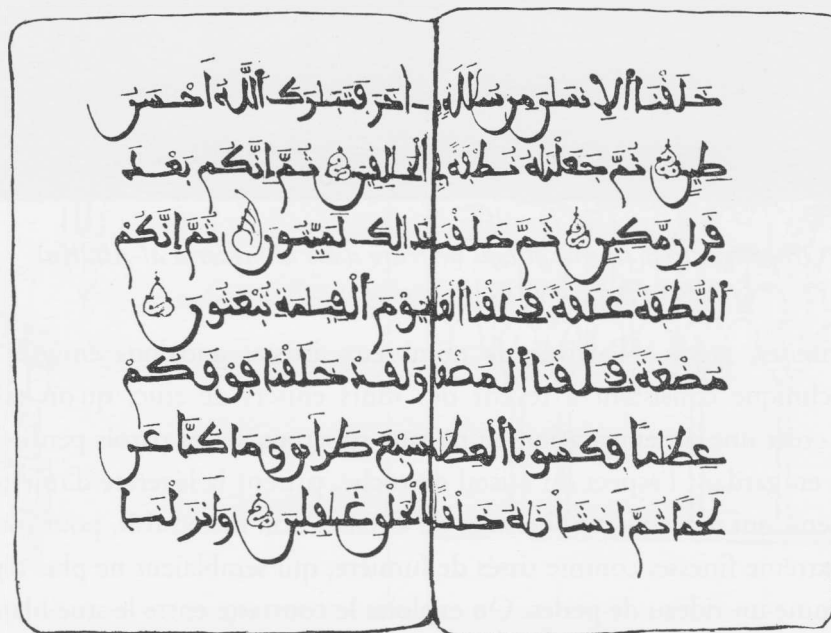 خَلَقْنَا ٱلْإِنسَٰنَ مِن سُلَٰلَةٍ
طِينٍ ثُمَّ جَعَلْنَٰهُ نُطْفَةً فِي
قَرَارٍ مَّكِينٍ ثُمَّ خَلَقْنَا
ٱلنُّطْفَةَ عَلَقَةً فَخَلَقْنَا
مُضْغَةً فَخَلَقْنَا ٱلْمُضْغَةَ
عِظَٰمًا فَكَسَوْنَا ٱلْعِظَٰمَ
لَحْمًا ثُمَّ أَنشَأْنَٰهُ خَلْقًا
اخَرَ فَتَبَٰرَكَ ٱللَّهُ أَحْسَنُ
ٱلْخَٰلِقِينَ ثُمَّ إِنَّكُم بَعْدَ
ذَٰلِكَ لَمَيِّتُونَ ثُمَّ إِنَّكُمْ
يَوْمَ ٱلْقِيَٰمَةِ تُبْعَثُونَ
وَلَقَدْ خَلَقْنَا فَوْقَكُمْ
سَبْعَ طَرَآئِقَ وَمَا كُنَّا عَنِ
ٱلْخَلْقِ غَٰفِلِينَ وَأَنزَلْنَا